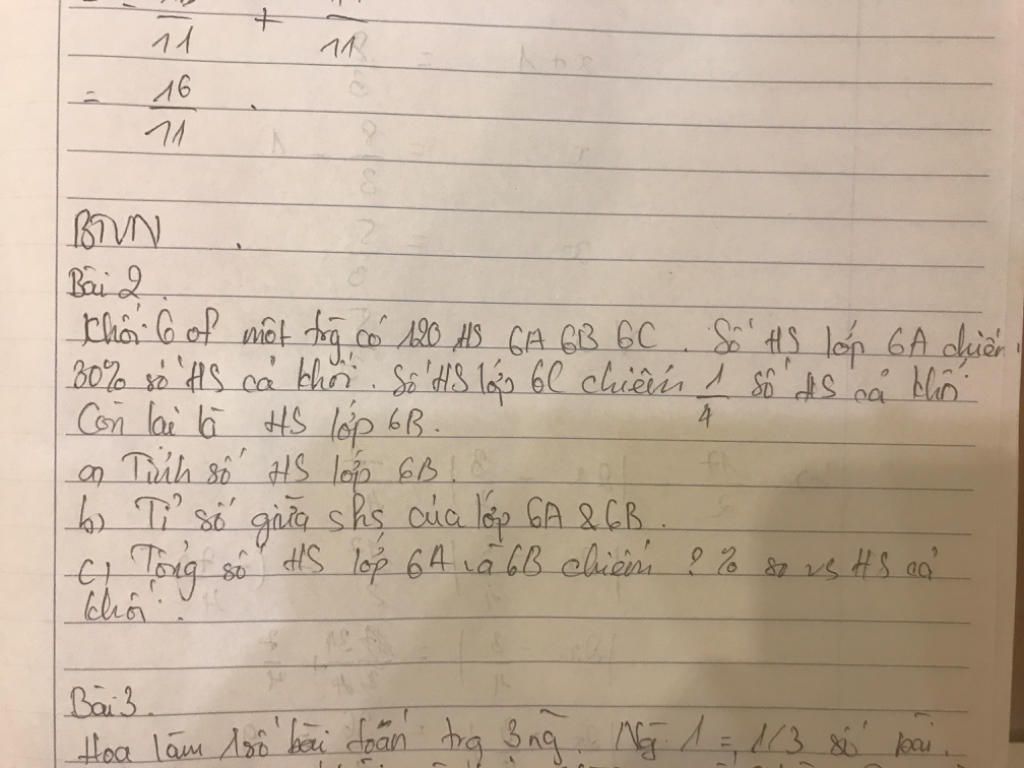 11 + 11
= 16/11 .
BTVN .
Bài 2.
Khối 6 of một trg có 120 HS 6A 6B 6C. Số HS lớp 6A chiếm
30% số HS cả khối. Số HS lớp 6C chiếm 1/4 số HS cả khối
Còn lại là HS lớp 6B.
a) Tính số HS lớp 6B!
b) Tỉ số giữa shs của lớp 6A & 6B.
c) Tổng số HS lớp 6A và 6B chiếm ? % so vs HS cả
khối.
Bài 3.
Hoa làm 1 số bài toán trg 3 ng. Ng 1 = 1/3 số bài.